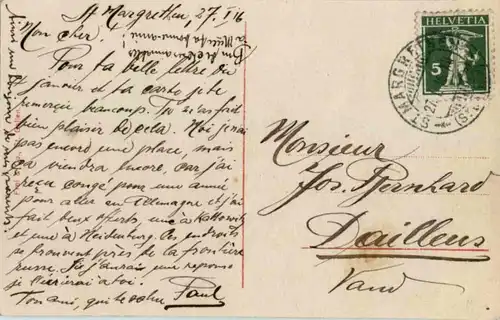 St Margrethen, 27. I 16
Mon cher!
Pour ta belle lettre du
janvier et la carte je te
remercie beaucoup. Tu m'as fait
bien plaisir de cela. Moi je n'ai
pas encore une place, mais
ça viendra encore, car j'ai
reçu congé pour une année
pour aller en Allemagne et j'ai
fait deux offerts, une à Kattowitz
et une à Heidenburg. Ces endroits
se trouvent près de la frontière
russe. Si j'aurais une réponse
je t'écrirai à toi.
Ton ami, qui te salue Paul
HELVETIA
5
ST. MARGRETHEN
Monsieur
Jos. Bernhard
Daillens
Vaud